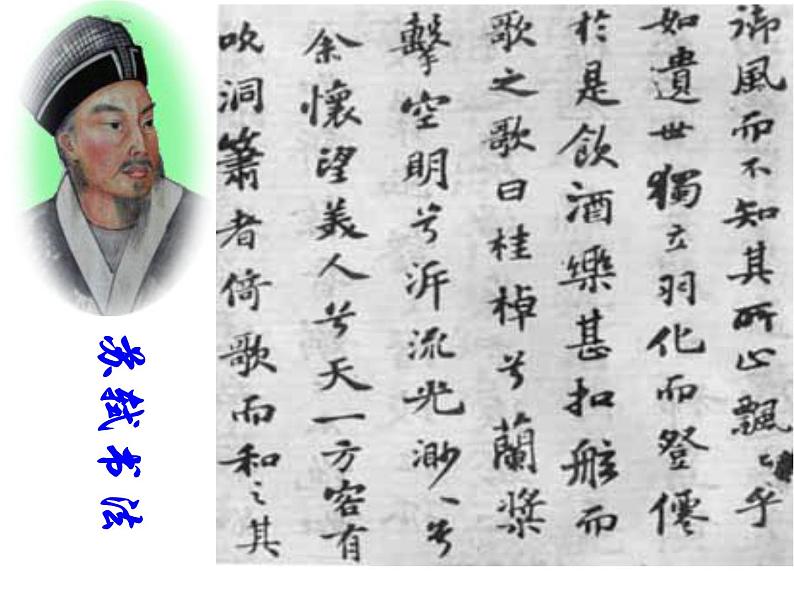 御風而不知其所止飄〻乎
如遺世獨立羽化而登僊
於是飲酒樂甚扣舷而
歌之歌曰桂棹兮蘭槳
擊空明兮泝流光渺〻兮
余懷望美人兮天一方客有
吹洞簫者倚歌而和之其
苏轼书法